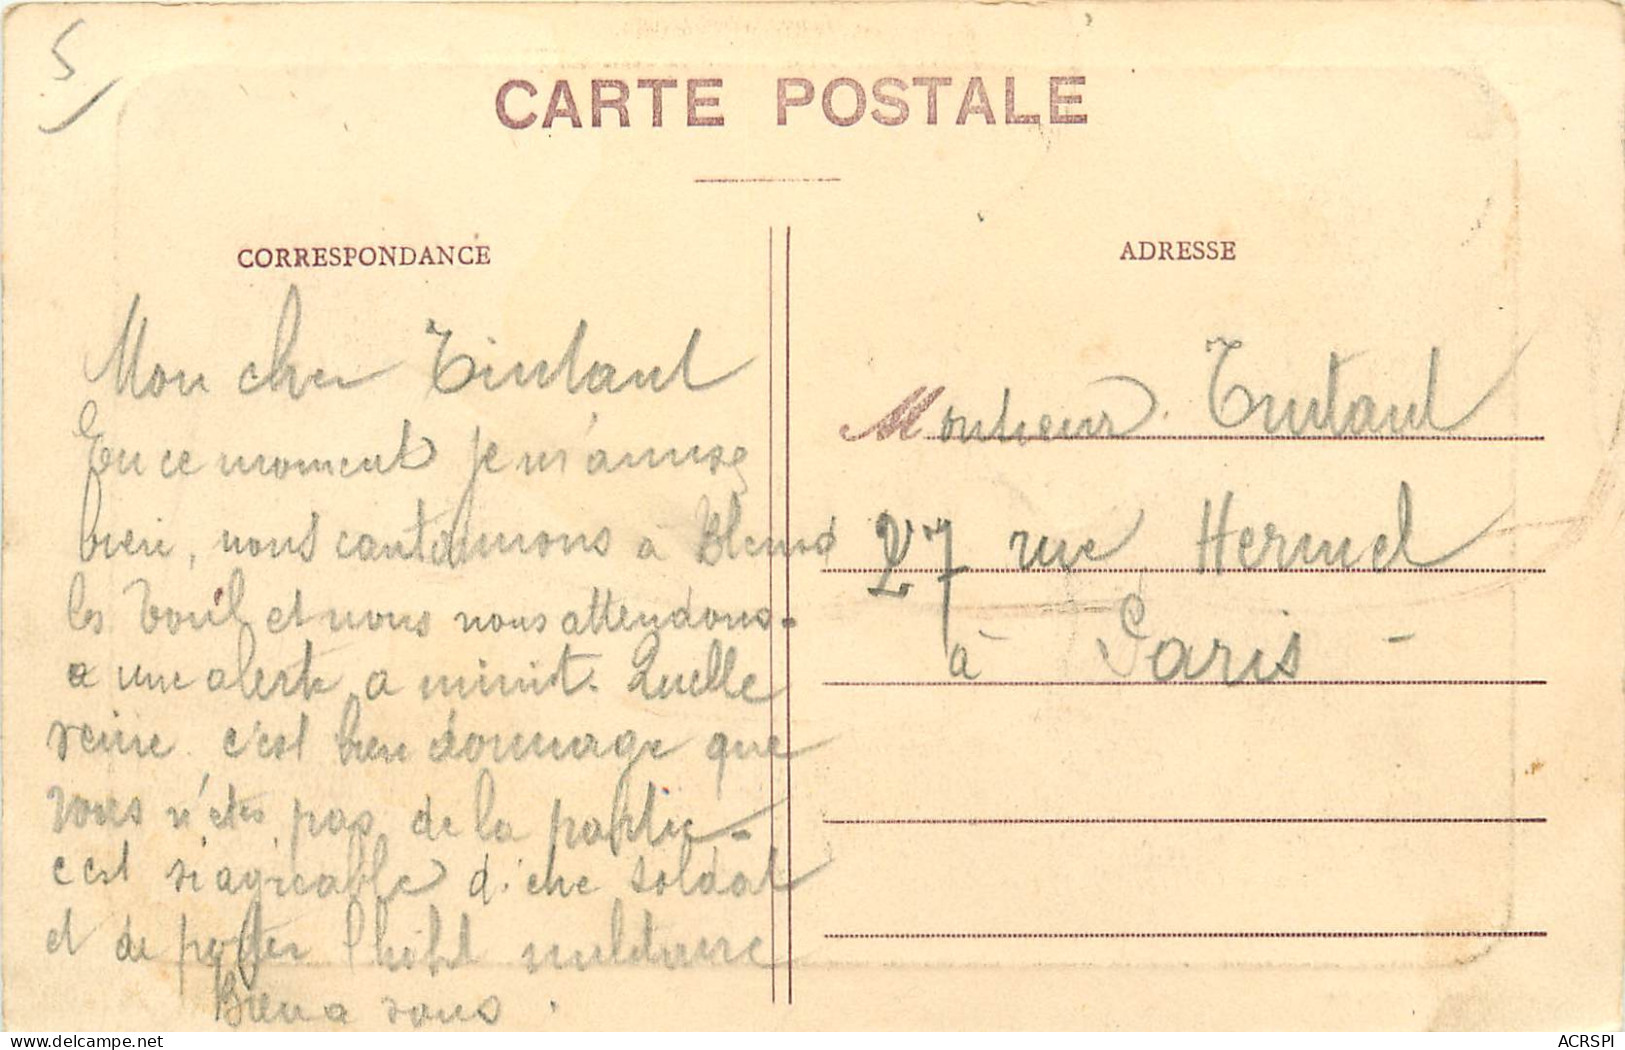 5
CARTE POSTALE
CORRESPONDANCE
Mon cher Tintant
En ce moment je m'amuse
bien, nous cantonnons à Blenod
les Toul et nous nous attendons
a une alerte a minuit. Quelle
veine. c'est bien dommage que
vous n'etes pas de la partie -
c'est si agreable d'etre soldat
et de porter l' militaire
Bien a vous.
ADRESSE
Monsieur Tintant
27 rue Hermel
à Paris -
ACRSPI